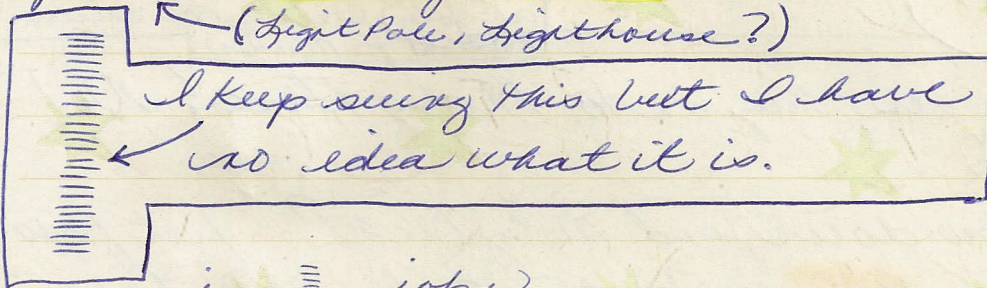 (Light Pole, Lighthouse?)
I keep seeing this but I have
no idea what it is.